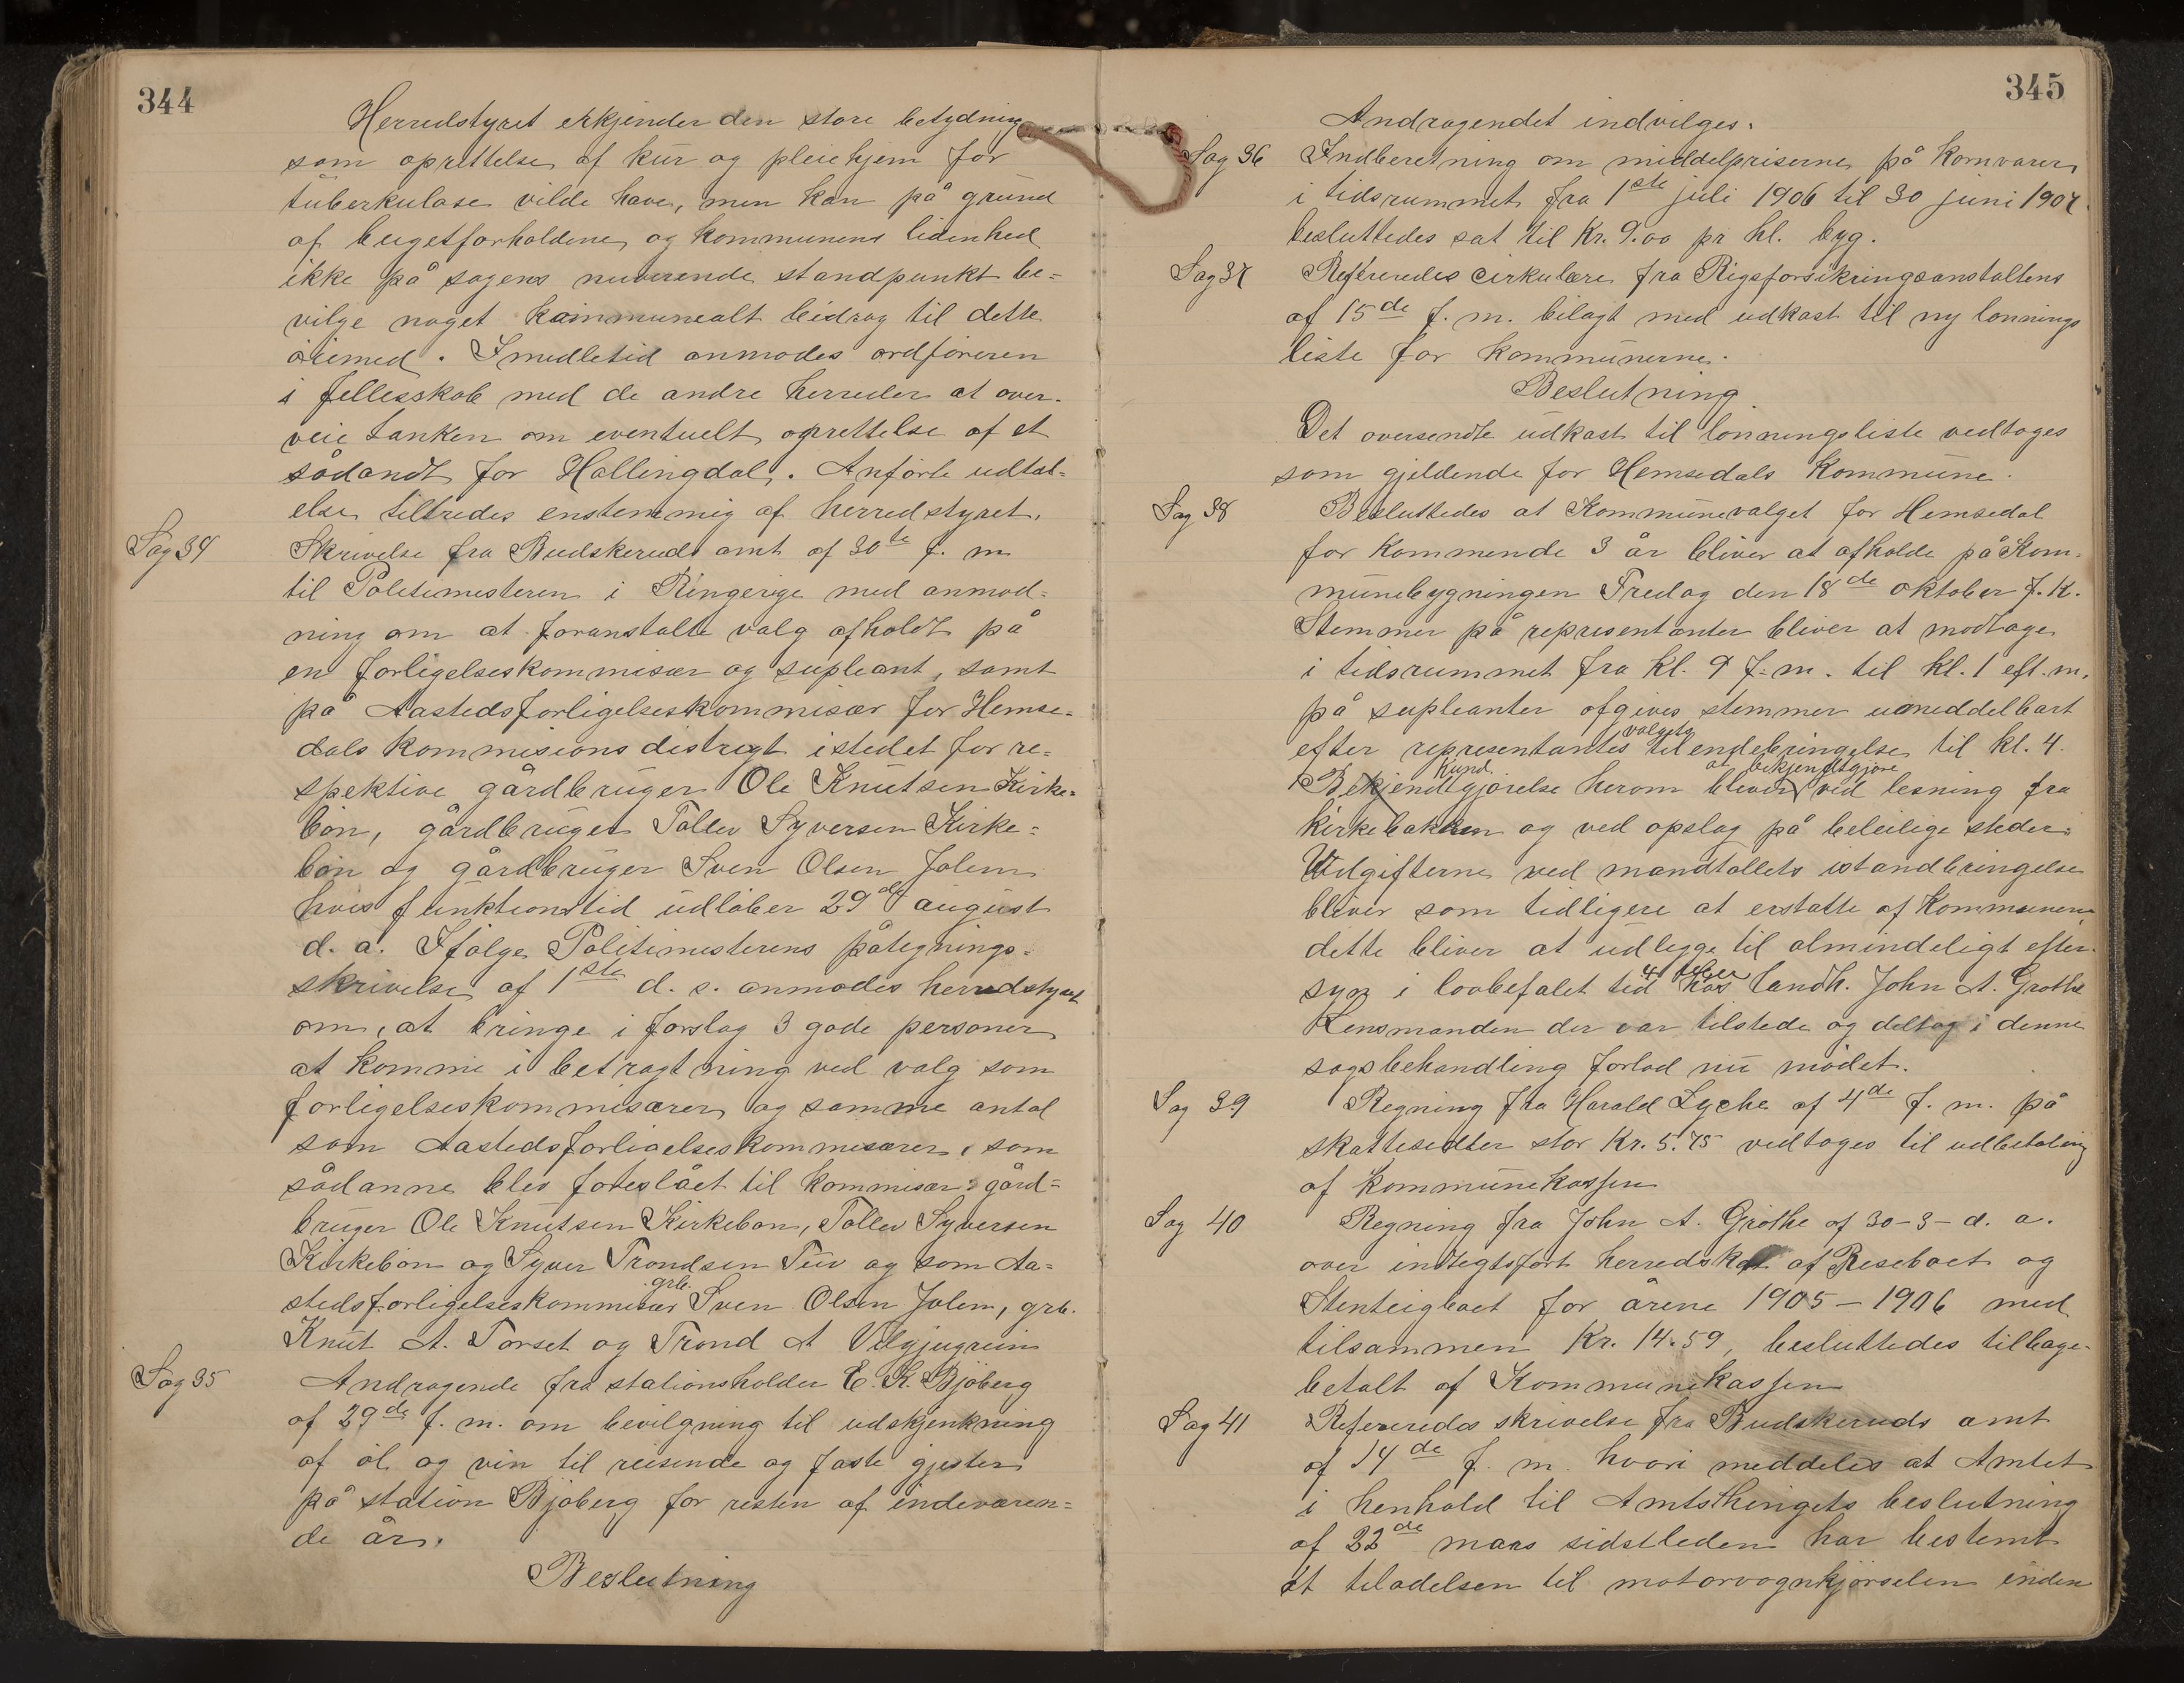 344
Herredstyret erkjender den store betydning
som oprettelse af kur og pleiehjem for
tuberkulose vilde have, men kan på grund
af bugetforholdene og kommunens lidenhed
ikke på sagens nuverende standpunkt be=
vilge noget kommunealt bidrag til dette
öiemed. Imidletid anmodes ordföreren
i fellesskab med de andre herreder at over-
veie tanken om eventuelt oprettelse af et
sådandt for Hallingdal. Anförte udtal=
else tiltredes enstemmig af herredstyret.
Sag 34 Skrivelse fra Budskeruds amt af 30te f. m
til Politimesteren i Ringerige med anmod=
ning om at foranstalte valg afholdt på
en forligelseskommisær og supleant, samt
på Aastedsforligelseskommisær for Hemse=
dals kommisions distrigt istedet for re=
spektive gårdbruger Ole Knutsen Kirke=
bön, gårdbruger Tollev Syversen Kirke=
bön og gårdbruger Sven Olsen Jolem
hvis funktionstid udlöber 29de august
d. a. Ifölge Politimesterens påtegnings=
skrivelse af 1ste d. s. anmodes herredstyret
om, at bringe i forslag 3 gode personer
at komme i betragtning ved valg som
forligelseskommisærer og samme antal
som Aastedsforligelseskommisærer, som
sådanne blev foreslået til kommisær: gård=
bruger Ole Knutsen Kirkebön, Tollev Syversen
Kirkebön og Syver Trondsen Tuv og som Aa=
stedsforligelseskommisær grb. Sven Olsen Jolem, grb.
Knut A. Torset og Trond A
Sag 35 Andragende fra stationsholder E. K. Bjöberg
af 29de f. m. om bevilgning til udskjenkning
af öl og vin til reisende og faste gjester
på station Bjöberg for resten af indeværen=
de år.
Beslutning
345
Andragendet indvilges.
Sag 36 Indberetning om middelpriserne på kornvarer
i tidsrummet fra 1ste juli 1906 til 30 juni 1907
besluttedes sat til Kr. 9.00 pr hl. byg.
Sag 37 Refereredes cirkulære fra Rigsforsikringsanstaltens
af 15de f. m. bilagt med udkast til ny lønnings
liste for kommunerne.
Beslutning
Det oversendte udkast til lönningsliste vedtages
som gjeldende for Hemsedals Kommune.
Sag 38 Besluttedes at Kommunevalget for Hemsedal
for kommende 3 år bliver at afholde på Kom-
munebygningen Fredag den 18de oktober f. k.
Stemmer på representanter bliver at modtage
i tidsrummet fra kl. 9 f.m. til kl. 1 eft. m.
på supleanter afgives stemmer umiddelbart
efter representantes valgets tilendebringelse til kl. 4.
Bekjendtgjörelse Kund herom bliver at bekjendtgjöre ved lesning fra
kirkebakken og ved opslag på beleilige steder.
Udgifterne ved mandtallets istandbringelse
bliver som tidligere at erstatte af Kommunen
dette bliver at udlegge til almindeligt efter-
syn i lovbefalet tid 4 uker hos landh. John A. Grøthe
Lensmanden der var tilstede og deltog i denne
sagsbehandling forlod nu mödet.
Sag 39 Regning fra Harald Lyche af 4de f. m. på
skattesedler stor Kr. 5.75 vedtages til udbetaling
af kommunekassen
Sag 40 Regning fra John A. Gröthe af 30-3- d. a.
over indtegtsfört herredskat af Reseboet og
Stenteigboet for årene 1905-1906 med
tilsammen Kr. 14.59, besluttedes tilbage-
betalt af Kommunekassen
Sag 41 Refereredes skrivelse fra Budskeruds amt
af 14de f. m. hvori meddeles at Amtet
i henhold til Amtsthingets beslutning
af 22de mars sidstleden har bestemt
at tiladelsen til motorvognkjörselen inden